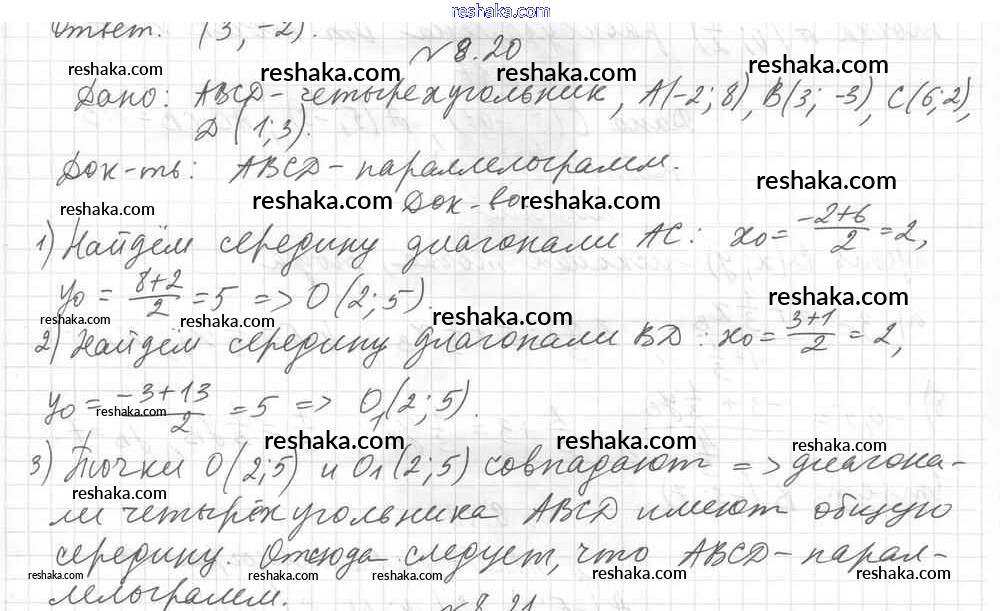 reshaka.com
Ответ. (3; -2).
№ 8.20
reshaka.com reshaka.com reshaka.com
Дано: ABCD - четырехугольник, A(-2; 8), B(3; -3), C(6; 2),
D(1; 3).
reshaka.com reshaka.com reshaka.com
Док-ть: ABCD - параллелограмм.
reshaka.com reshaka.com reshaka.com
Док-во
1) Найдём середину диагонали AC: x₀ = -2+6/2 = 2,
y₀ = 8+2/2 = 5 => O(2; 5).
reshaka.com reshaka.com reshaka.com reshaka.com
2) Найдём середину диагонали BD: x₀ = 3+1/2 = 2,
y₀ = -3+13/2 = 5 => O₁(2; 5).
reshaka.com
reshaka.com reshaka.com reshaka.com
3) Точки O(2; 5) и O₁(2; 5) совпадают => диагона-
reshaka.com
ли четырёхугольника ABCD имеют общую
reshaka.com reshaka.com reshaka.com
середину. Отсюда следует, что ABCD - парал-
reshaka.com reshaka.com reshaka.com reshaka.com reshaka.com
лелограмм.
№ 8.21